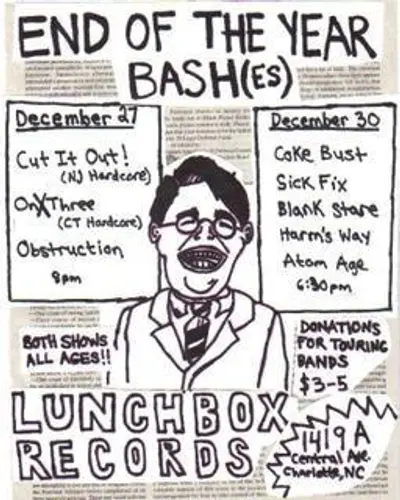 END OF THE YEAR
BASH(ES)
December 27
Cut It Out!
(NJ Hardcore)
OnXThree
(CT Hardcore)
Obstruction
8pm
December 30
Coke Bust
Sick Fix
Blank Stare
Harm's Way
Atom Age
6:30pm
BOTH SHOWS
ALL AGES!!
DONATIONS
FOR TOURING
BANDS
$3-5
LUNCHBOX
RECORDS
1419 A
Central Ave.
Charlotte, NC